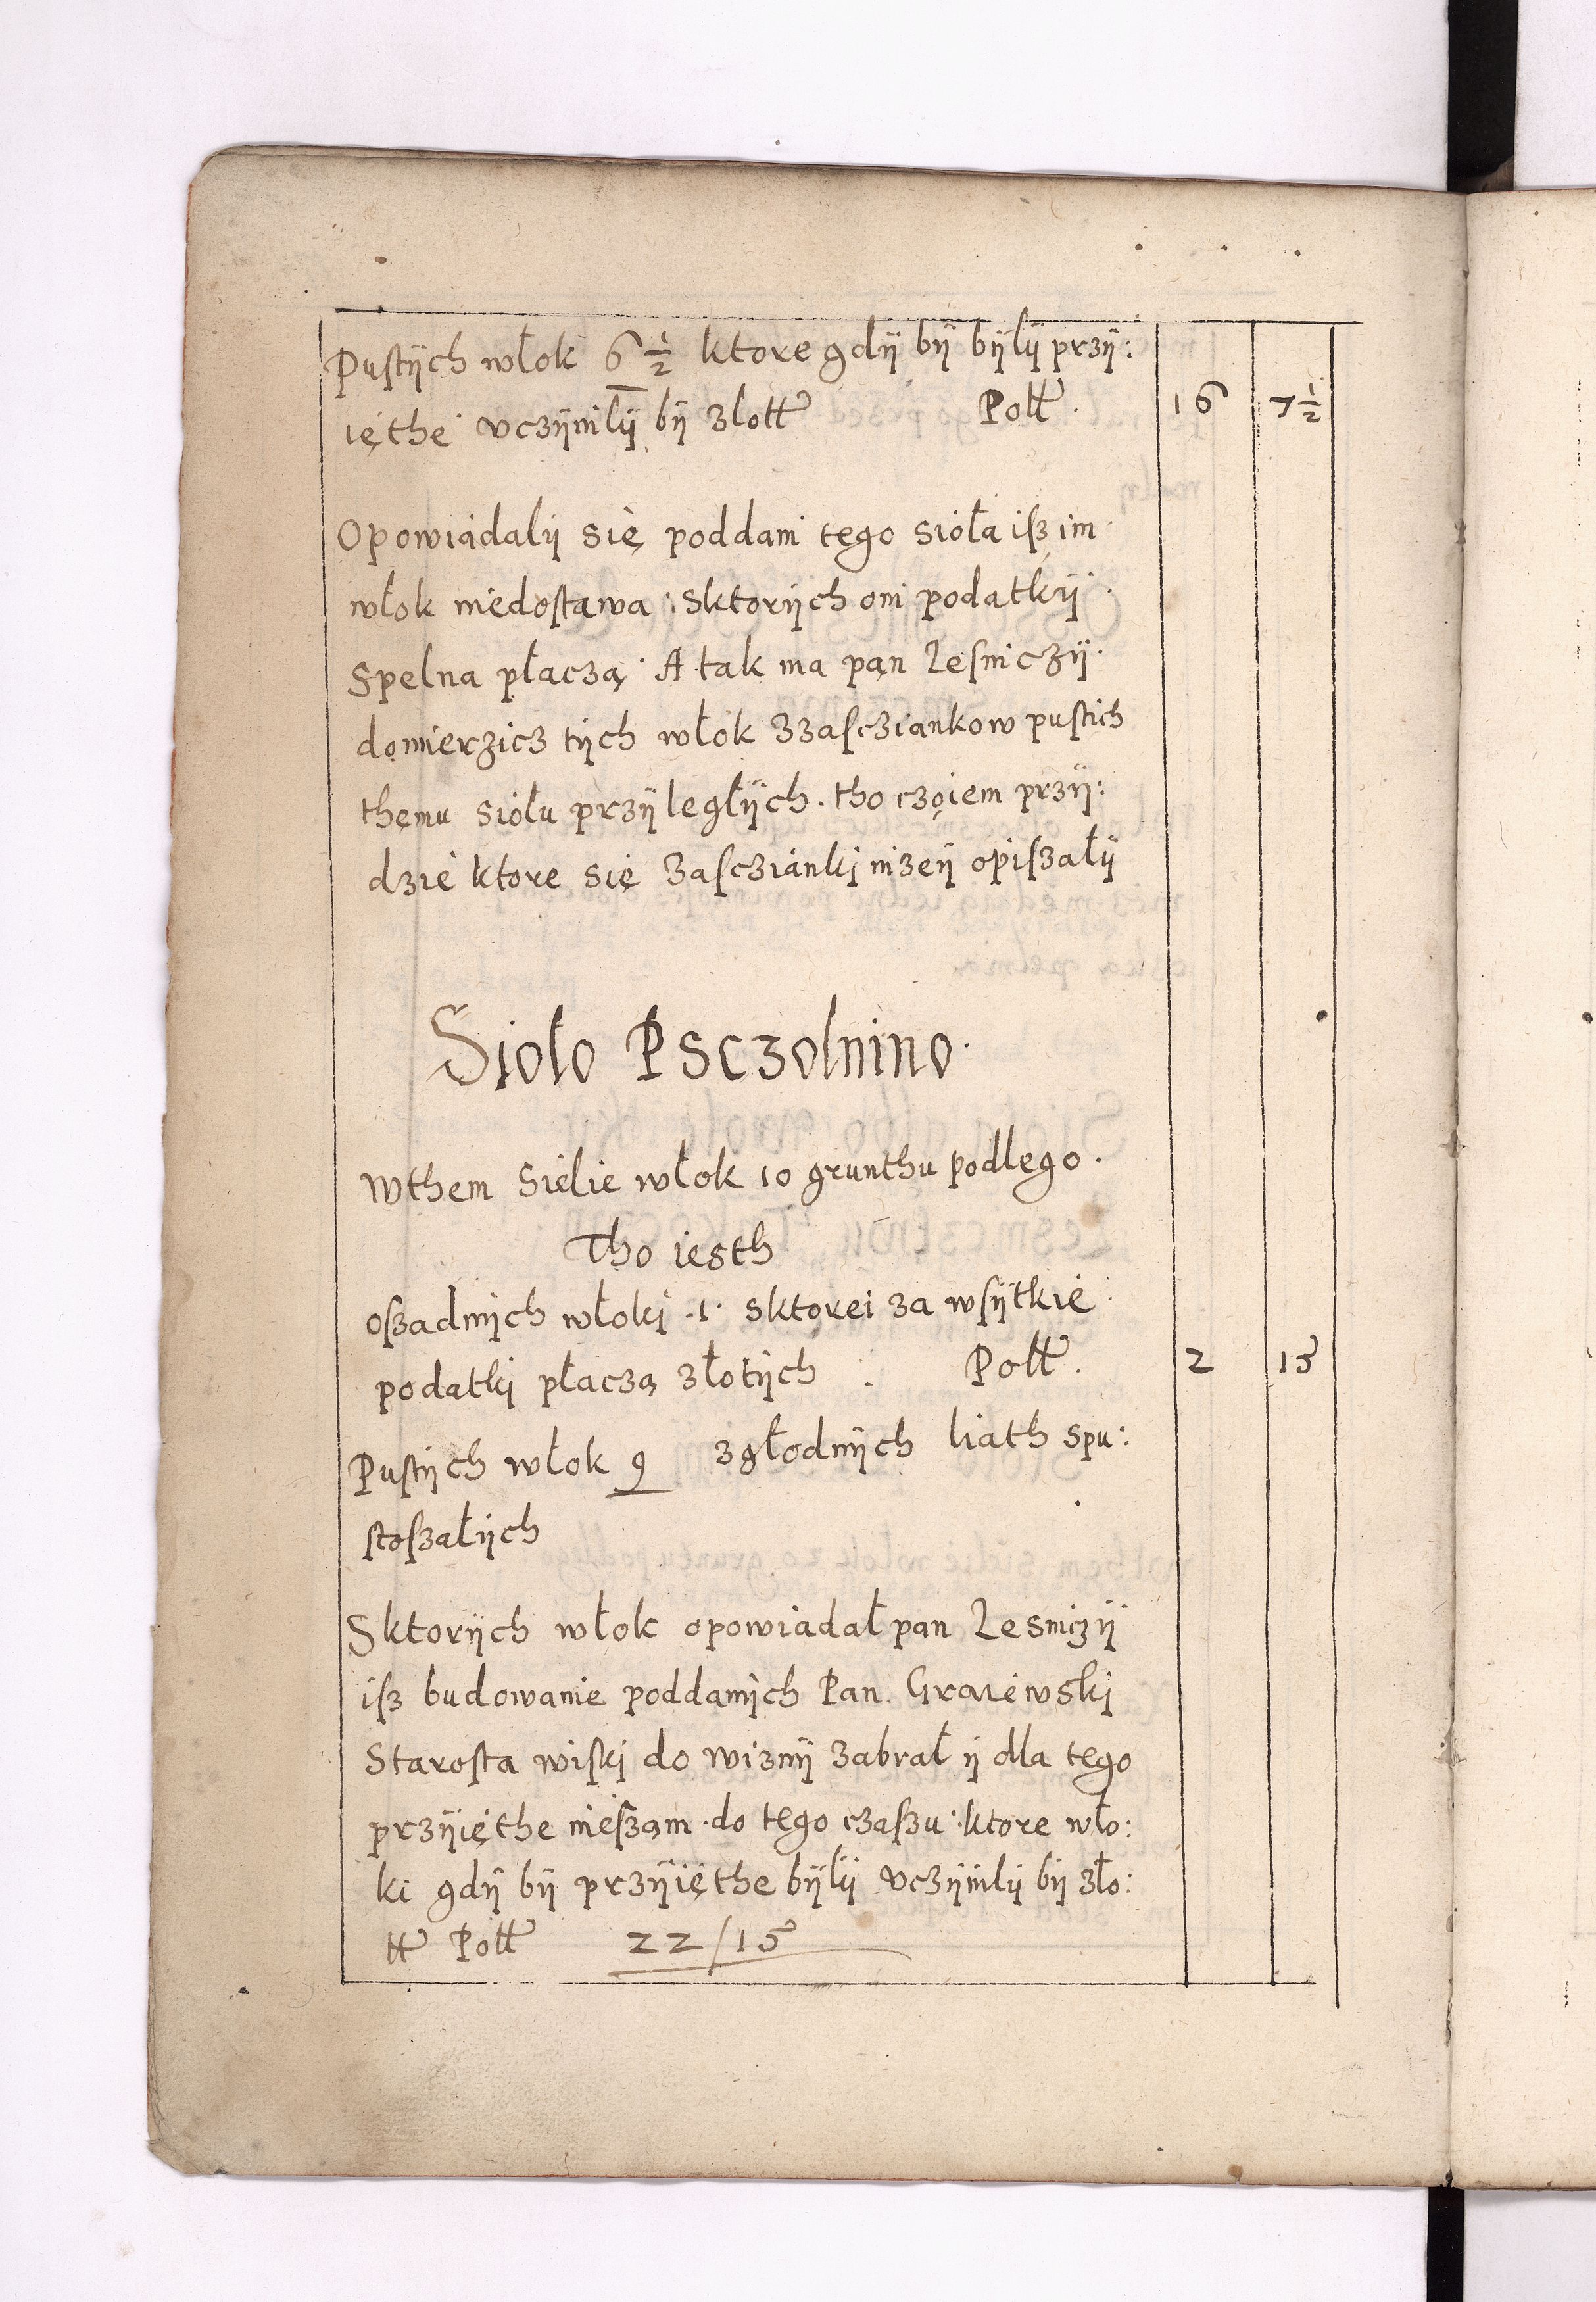 Pustÿch włok 6 ½ ktore gdÿ bÿ bÿlÿ przÿ:
ięthe vczÿnilÿ bÿ złott Poll. 16 7½
Opowiadalÿ się poddani tego sioła isz im
włok niedostawa: sktorÿch oni podatkÿ
Spelna płaczą A tak ma pan Lesniczÿ
domierzicz tÿch włok zzascziankow pustich
themu siołu przÿległÿch. tho czoiem przÿ:
dzie ktore się zasczianki nizeÿ opiszałÿ
Sioło Psczolnino
Wthem Sielie włok 10 grunthu podlego.
Tho iesth
oszadnÿch włoki .1. sktorei za wsÿtkie
podatki płaczą złotÿch Poll. 2 15
Pustÿch włok 9 zgłodnÿch liath spu:
stoszałÿch
Sktorÿch włok opowiadał pan Lesniczÿ
isz budowanie poddanÿch Pan. Graiewski
Starosta wiski do wiznÿ zabrał ÿ dla tego
przÿięthe nieszam do tego czaszu: ktore wło:
ki gdÿ bÿ przÿięthe bÿlÿ vczÿnilÿ bÿ zło:
tt Poll 22/15